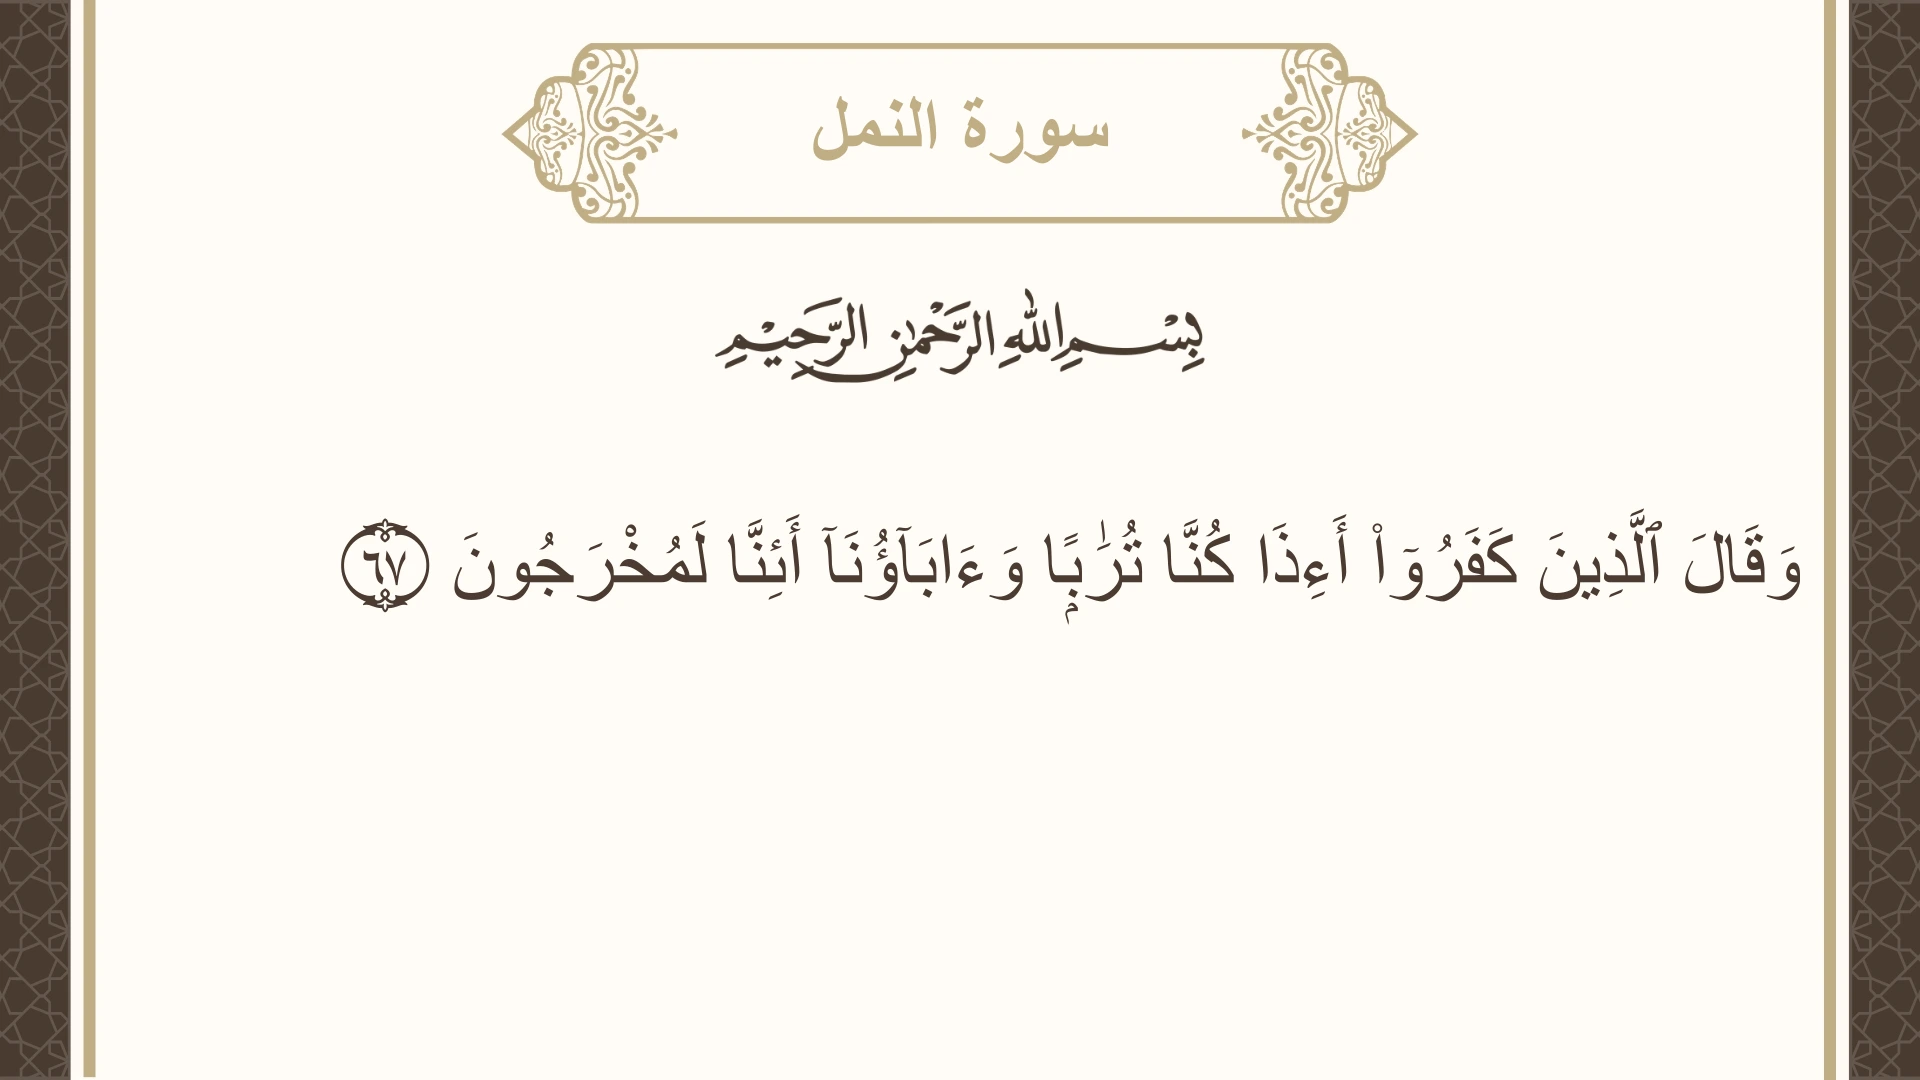 سورة النمل
بِسْمِ اللهِ الرَّحْمٰنِ الرَّحِيْمِ
وَقَالَ ٱلَّذِينَ كَفَرُوٓا۟ أَءِذَا كُنَّا تُرَٰبًۭا وَءَابَآؤُنَآ أَئِنَّا لَمُخْرَجُونَ ٦٧